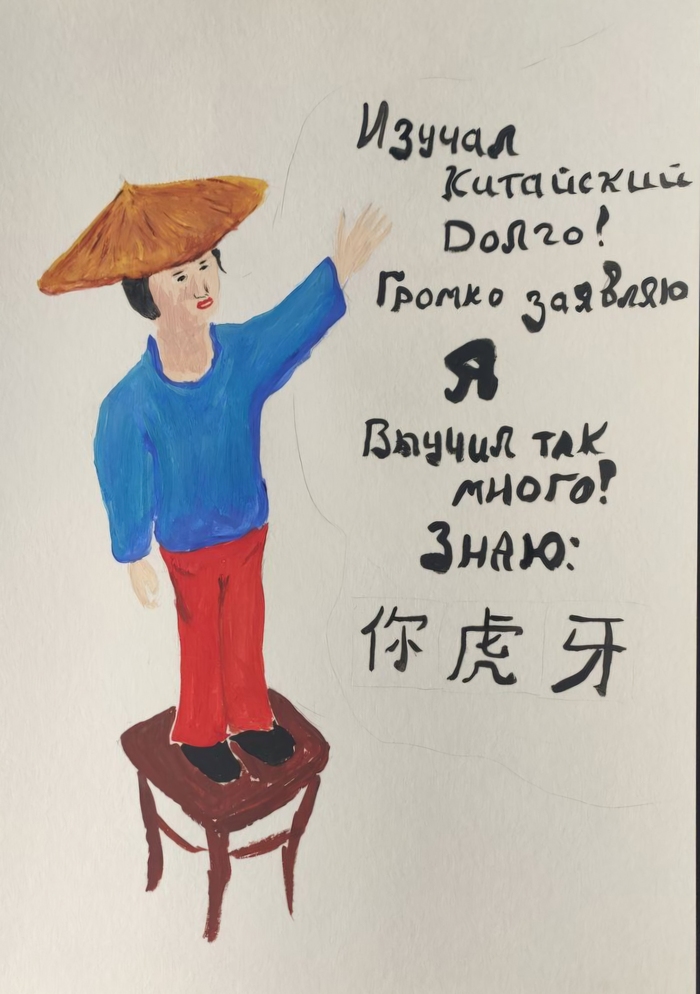 Изучал
Китайский
Долго!
Громко заявляю
Я
Выучил так
много!
Знаю:
你虎牙